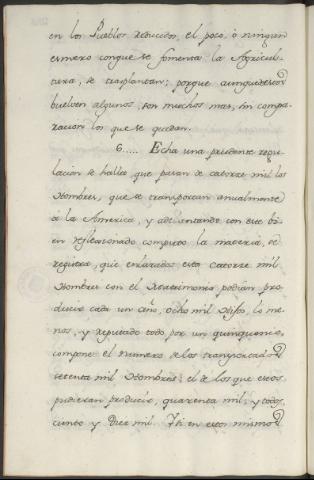 en los Pueblos reducidos, el poco, ò ningun
esmero con que se fomenta la Agricul-
tura, se trasplantan; porque aunque de estos
buelven algunos, son muchos mas, sin compa-
racion los que se quedan.
6..... Echa una prudente regu-
lacion se halla que pasan de catorce mil los
Hombres, que se transportan anualmente
à la America, y adelantando con este bi-
en reflexionado computo la materia, se
registra, que enlazados estos catorce mil
Hombres con el Matrimonio podian pro-
ducir cada un año, ocho mil Hijos, lo me-
nos, y reputado todo por un quinquenio,
compone el numero de los transportados
setenta mil Hombres: el de los que estos
pudieran producir, quarenta mil; y todos,
ciento y Diez mil. Y si en estos mismos